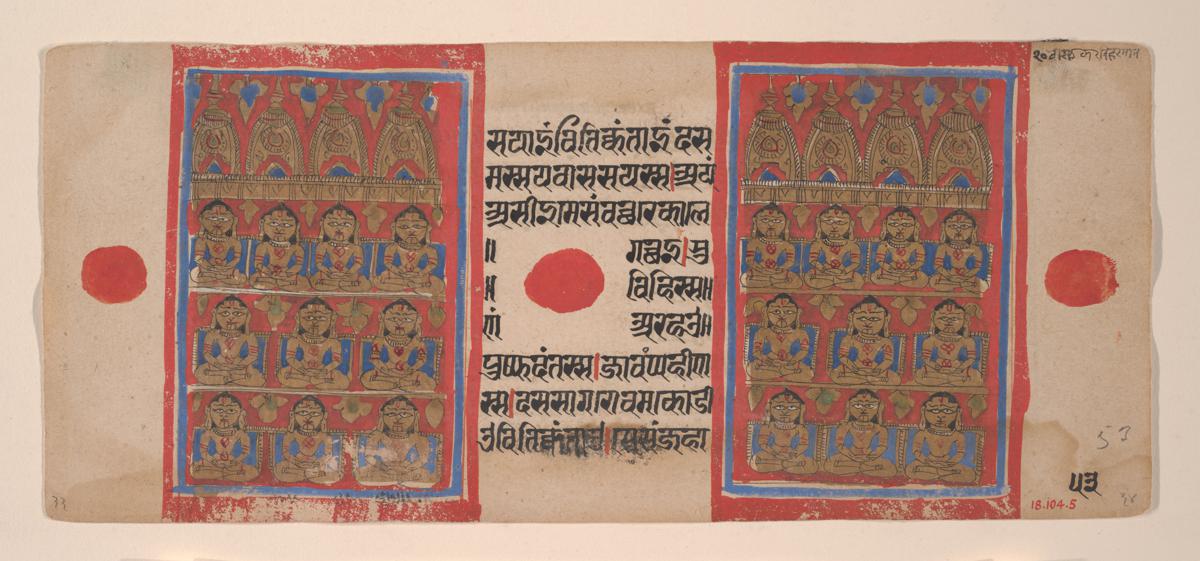 सयाइंवितिक्कंताइंदस
मस्सयवाससयस्स।अयं
असीइमेसंवच्छरेकाले
॥ गच्छइ।सु
॥ विहिस्स॥
णं अरहउ॥
पुप्फदंतस्स।जावंप्पहीण
स्स।दससागरोवमकोडी
उवितिक्कंताउ।सेसंजहा
53
५३
18.104.5
33